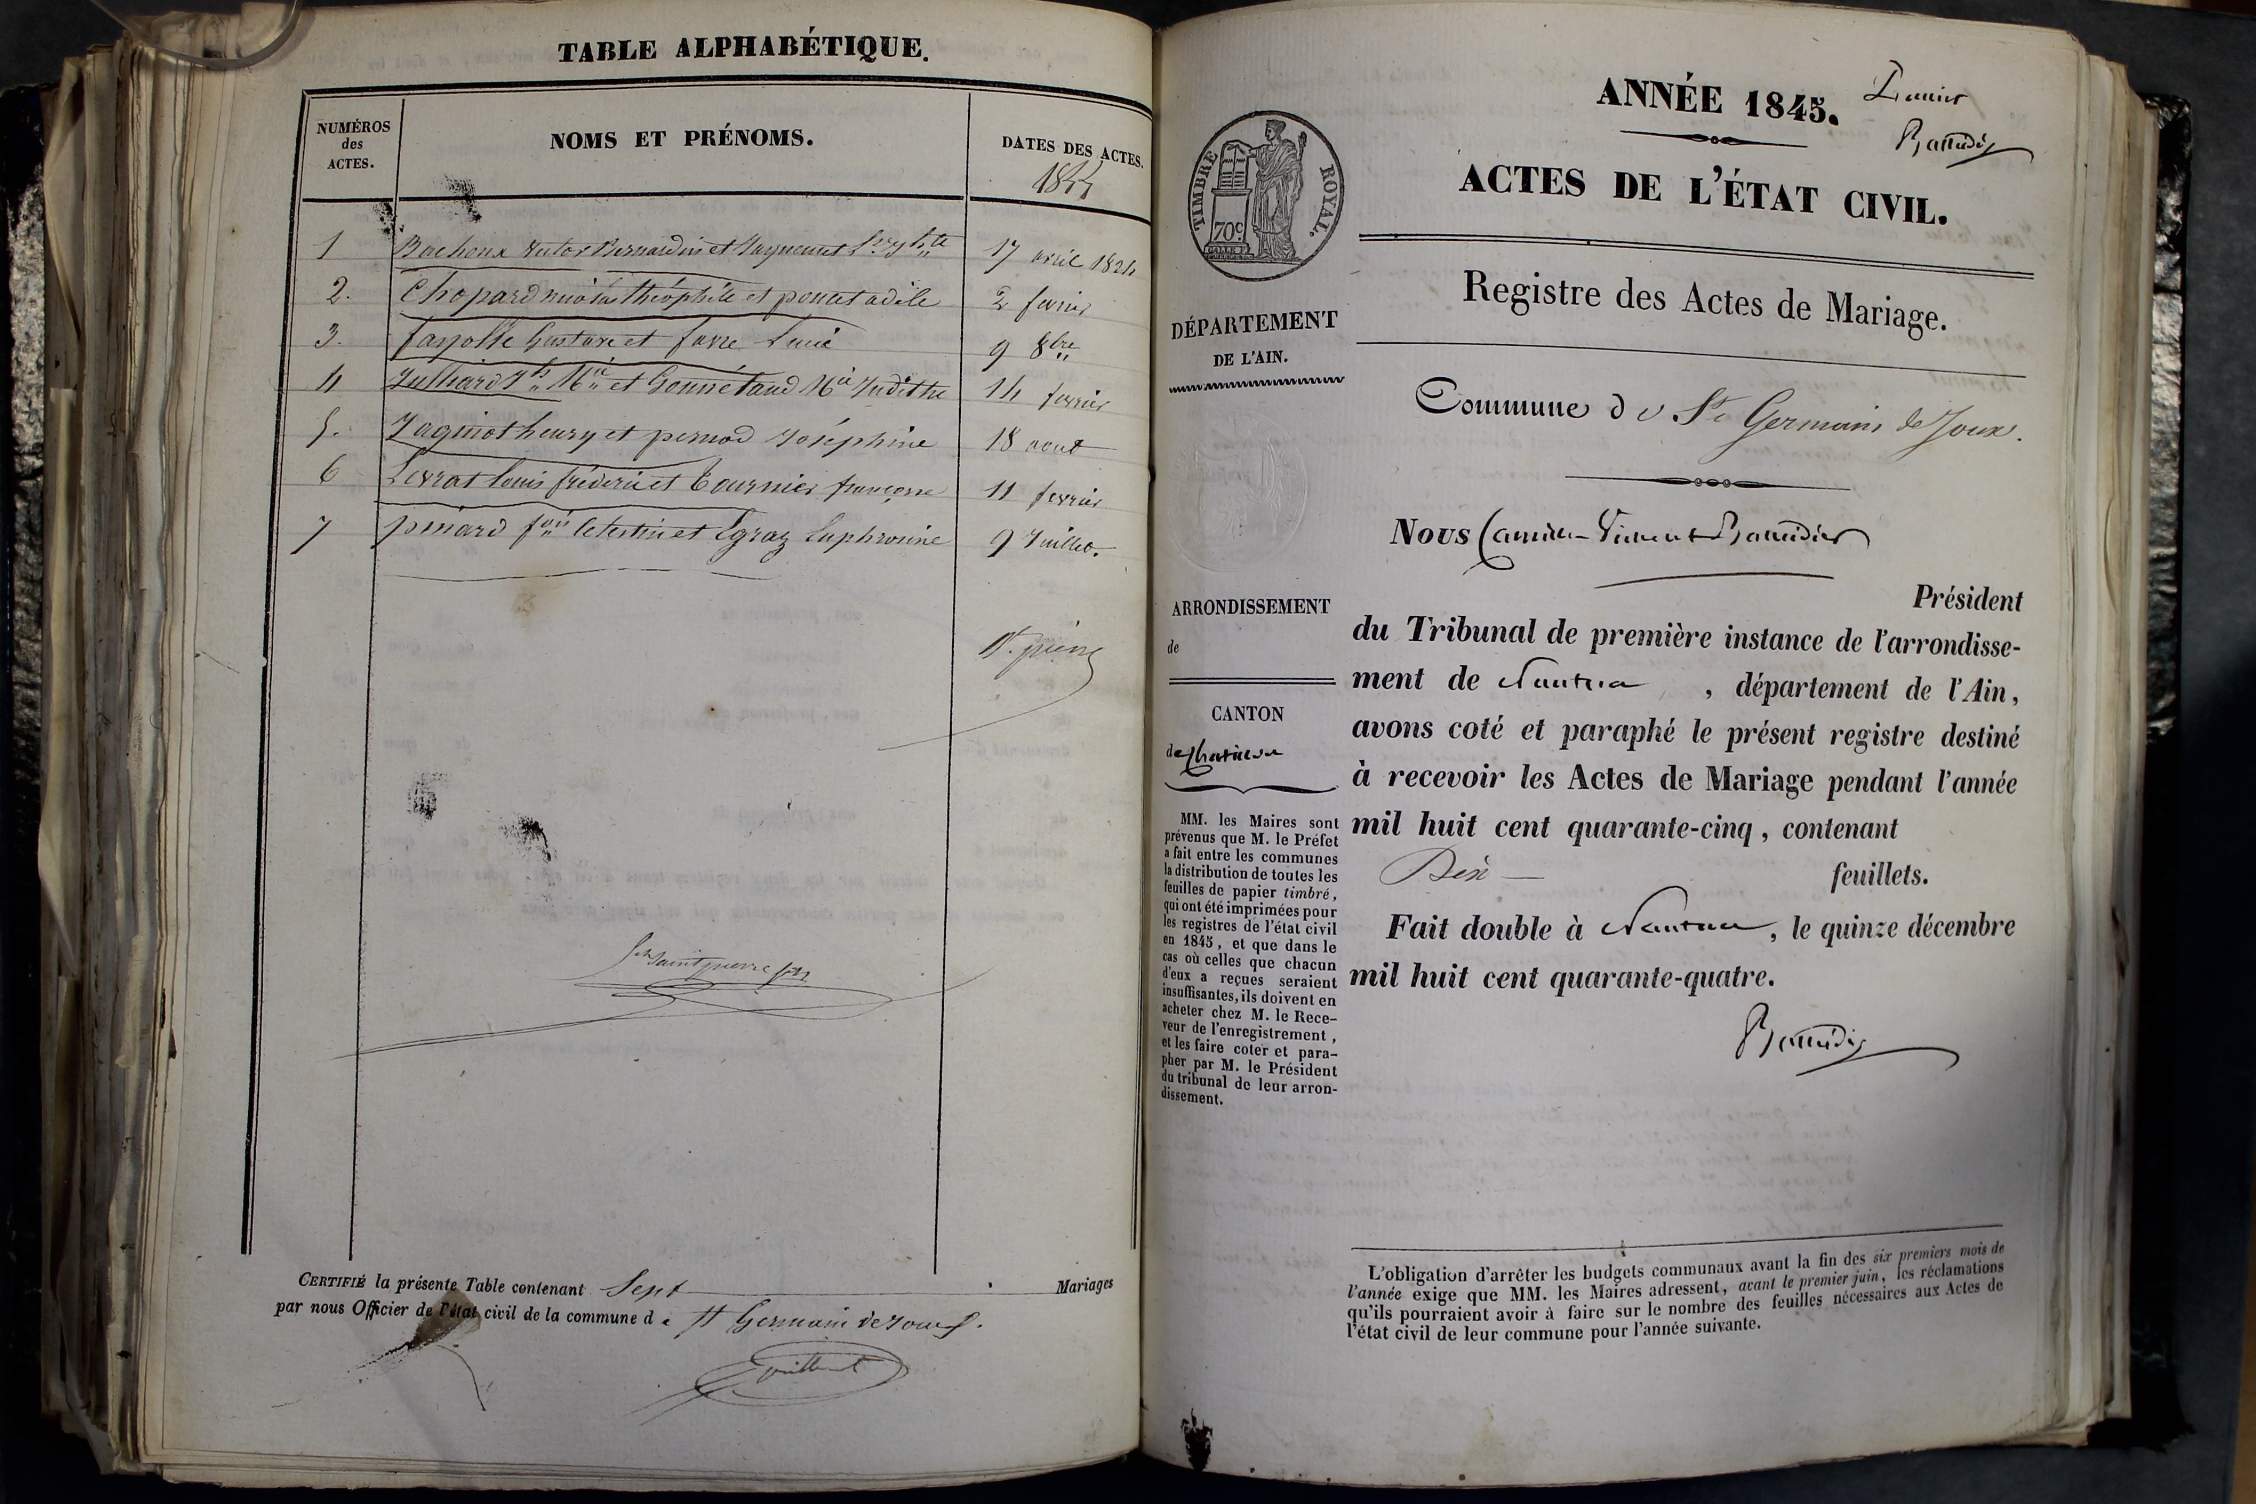 TABLE ALPHABÉTIQUE.
NUMÉROS
des
ACTES.
NOMS ET PRÉNOMS.
DATES DES ACTES.
1844
1 Bachoux Victor Bernardin et 17 avril 1844
2. Chopard théophile et poncet adèle 2 fevrier
3. fayolle Gustave et favre Lucie 9 8bre
4 Julliard Jh Mie et Gonnétand Mie Judithe 14 fevrier
5. Jaginot henry et pernod Joséphine 18 aout
6 Levrat louis fréderic et Tournier françoise 11 fevrier
7 piniard fois Celestin et Egraz Euphrosine 9 Juillet.
St. pierre
Saintpierre
CERTIFIÉ la présente Table contenant Sept Mariages
par nous Officier de l'état civil de la commune de St Germain de Joux.
ANNÉE 1845.
ACTES DE L'ÉTAT CIVIL.
TIMBRE ROYAL.
70c
Registre des Actes de Mariage.
DÉPARTEMENT
DE L'AIN.
Commune de St Germain de Joux.
NOUS Camille Vincent
Président
ARRONDISSEMENT
de
CANTON
de Chatillon
du Tribunal de première instance de l'arrondisse-
ment de Nantua, département de l'Ain,
avons coté et paraphé le présent registre destiné
à recevoir les Actes de Mariage pendant l'année
mil huit cent quarante-cinq, contenant
Dix feuillets.
Fait double à Nantua, le quinze décembre
mil huit cent quarante-quatre.
MM. les Maires sont
prévenus que M. le Préfet
a fait entre les communes
la distribution de toutes les
feuilles de papier timbré,
qui ont été imprimées pour
les registres de l'état civil
en 1845, et que dans le
cas où celles que chacun
d'eux a reçues seraient
insuffisantes, ils doivent en
acheter chez M. le Rece-
veur de l'enregistrement,
et les faire coter et para-
pher par M. le Président
du tribunal de leur arron-
dissement.
L'obligation d'arrêter les budgets communaux avant la fin des six premiers mois de
l'année exige que MM. les Maires adressent, avant le premier juin, les réclamations
qu'ils pourraient avoir à faire sur le nombre des feuilles nécessaires aux Actes de
l'état civil de leur commune pour l'année suivante.